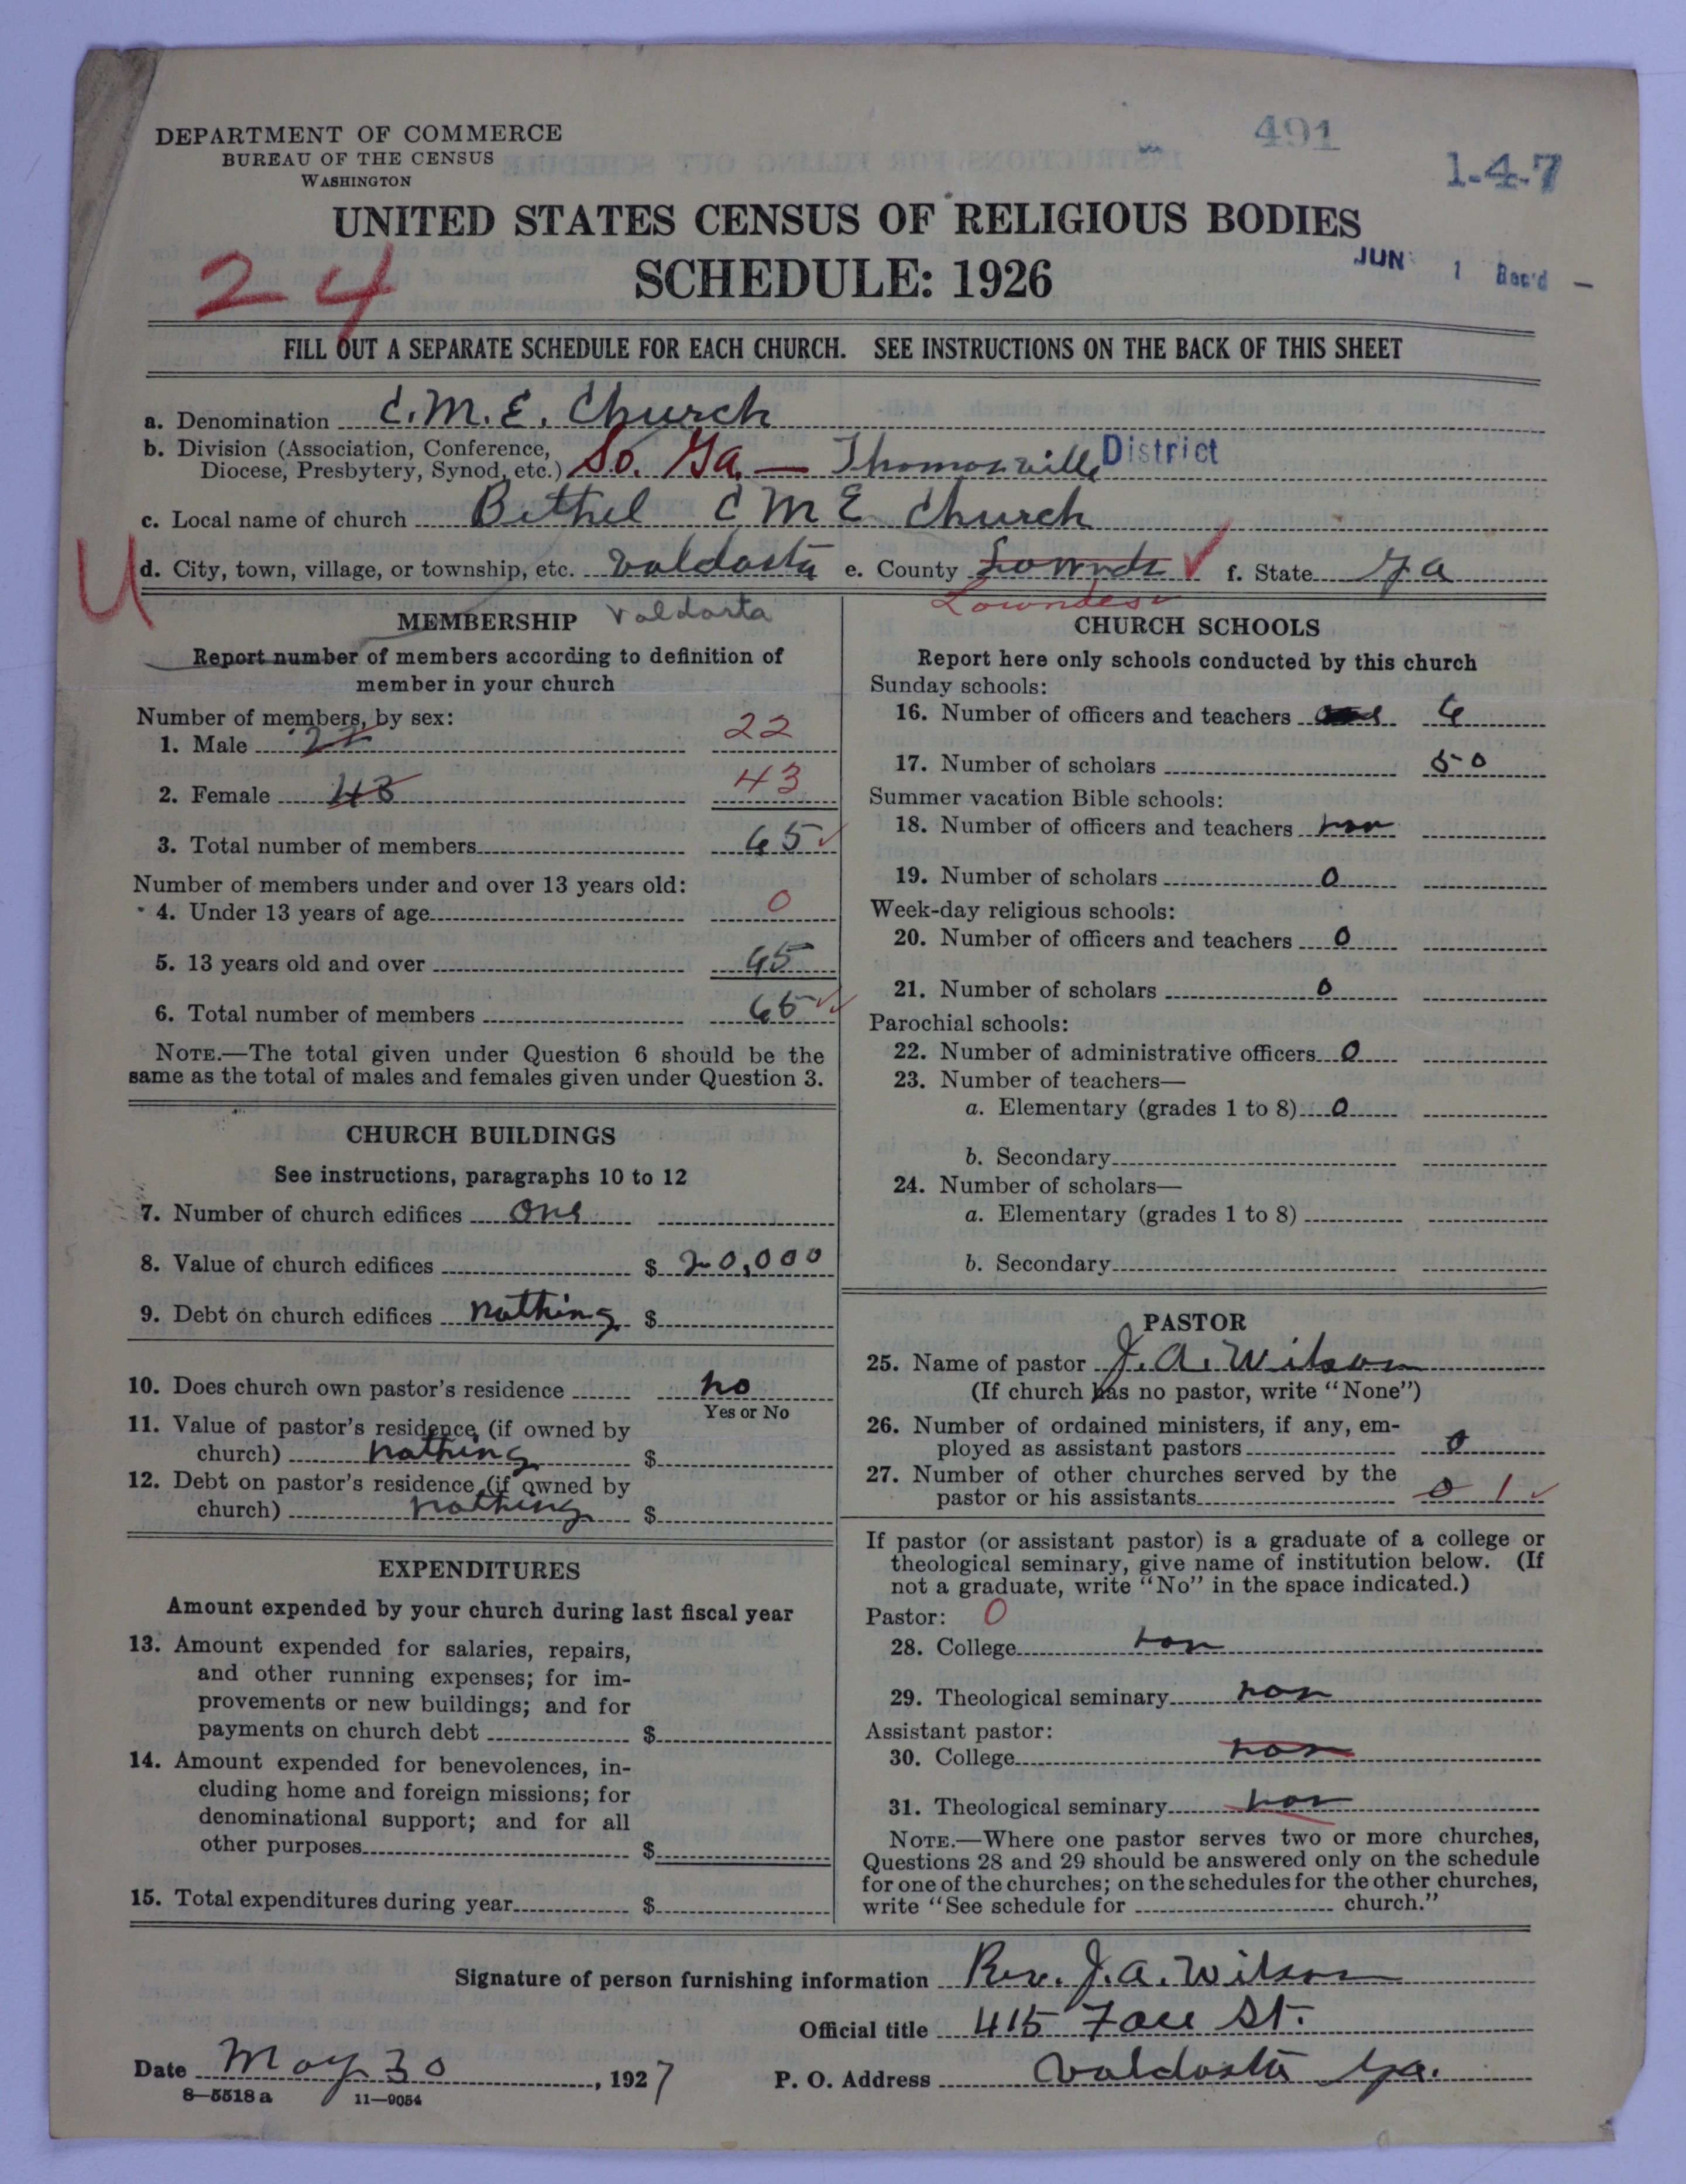 DEPARTMENT OF COMMERCE
BUREAU OF THE CENSUS
WASHINGTON
491
1-4-7
UNITED STATES CENSUS OF RELIGIOUS BODIES
SCHEDULE: 1926
JUN 1 Rec'd -
24
FILL OUT A SEPARATE SCHEDULE FOR EACH CHURCH. SEE INSTRUCTIONS ON THE BACK OF THIS SHEET
a. Denomination C.M.E. Church
b. Division (Association, Conference,
Diocese, Presbytery, Synod, etc.) So. Ga. — Thomasville District
c. Local name of church Bethel C M E Church
U
d. City, town, village, or township, etc. Valdosta e. County Lownds ✓ f. State Ga
Lowndes ✓
MEMBERSHIP Valdosta
Report number of members according to definition of
member in your church
Number of members, by sex:
1. Male 22 22
2. Female 43 43
3. Total number of members 65 ✓
Number of members under and over 13 years old:
4. Under 13 years of age 0
5. 13 years old and over 65
6. Total number of members 65 ✓✓
NOTE.—The total given under Question 6 should be the
same as the total of males and females given under Question 3.
CHURCH BUILDINGS
See instructions, paragraphs 10 to 12
7. Number of church edifices one
8. Value of church edifices $ 20,000
9. Debt on church edifices nothing $
10. Does church own pastor's residence no
Yes or No
11. Value of pastor's residence (if owned by
church) nothing $
12. Debt on pastor's residence (if owned by
church) nothing $
EXPENDITURES
Amount expended by your church during last fiscal year
13. Amount expended for salaries, repairs,
and other running expenses; for im-
provements or new buildings; and for
payments on church debt $
14. Amount expended for benevolences, in-
cluding home and foreign missions; for
denominational support; and for all
other purposes $
15. Total expenditures during year $
CHURCH SCHOOLS
Report here only schools conducted by this church
Sunday schools:
16. Number of officers and teachers 6
17. Number of scholars 50
Summer vacation Bible schools:
18. Number of officers and teachers non
19. Number of scholars 0
Week-day religious schools:
20. Number of officers and teachers 0
21. Number of scholars 0
Parochial schools:
22. Number of administrative officers 0
23. Number of teachers—
a. Elementary (grades 1 to 8) 0
b. Secondary
24. Number of scholars—
a. Elementary (grades 1 to 8)
b. Secondary
PASTOR
25. Name of pastor J. A. Wilson
(If church has no pastor, write "None")
26. Number of ordained ministers, if any, em-
ployed as assistant pastors 0
27. Number of other churches served by the
pastor or his assistants 0 1 ✓
If pastor (or assistant pastor) is a graduate of a college or
theological seminary, give name of institution below. (If
not a graduate, write "No" in the space indicated.)
Pastor: 0
28. College non
29. Theological seminary non
Assistant pastor:
30. College non
31. Theological seminary non
NOTE.—Where one pastor serves two or more churches,
Questions 28 and 29 should be answered only on the schedule
for one of the churches; on the schedules for the other churches,
write "See schedule for church."
Signature of person furnishing information Rev. J. A. Wilson
Official title 415 St.
Date May 30, 1927
P. O. Address Valdosta Ga.
8—5518 a 11—9054